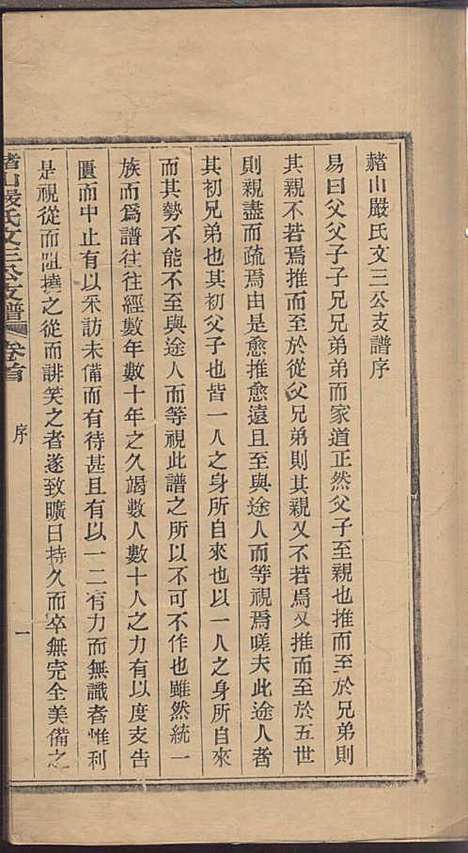 赭山嚴氏文三公支譜序
易曰父父子子兄兄弟弟而家道正然父子至親也推而至於兄弟則
其親不若焉推而至於從父兄弟則其親又不若焉又推而至於五世
則親盡而疏焉由是愈推愈遠且至與途人而等視焉嗟夫此途人者
其初兄弟也其初父子也皆一人之身所自來也以一人之身所自來
而其勢不能不至與途人而等視此譜之所以不可不作也雖然統一
族而爲譜往往經數年數十年之久竭數人數十人之力有以度支告
匱而中止有以采訪未備而有待甚且有以一二有力而無識者惟利
是視從而阻撓之從而誹笑之者遂致曠日持久而卒無完全美備之
赭山嚴氏文三公支譜 卷首
序
一